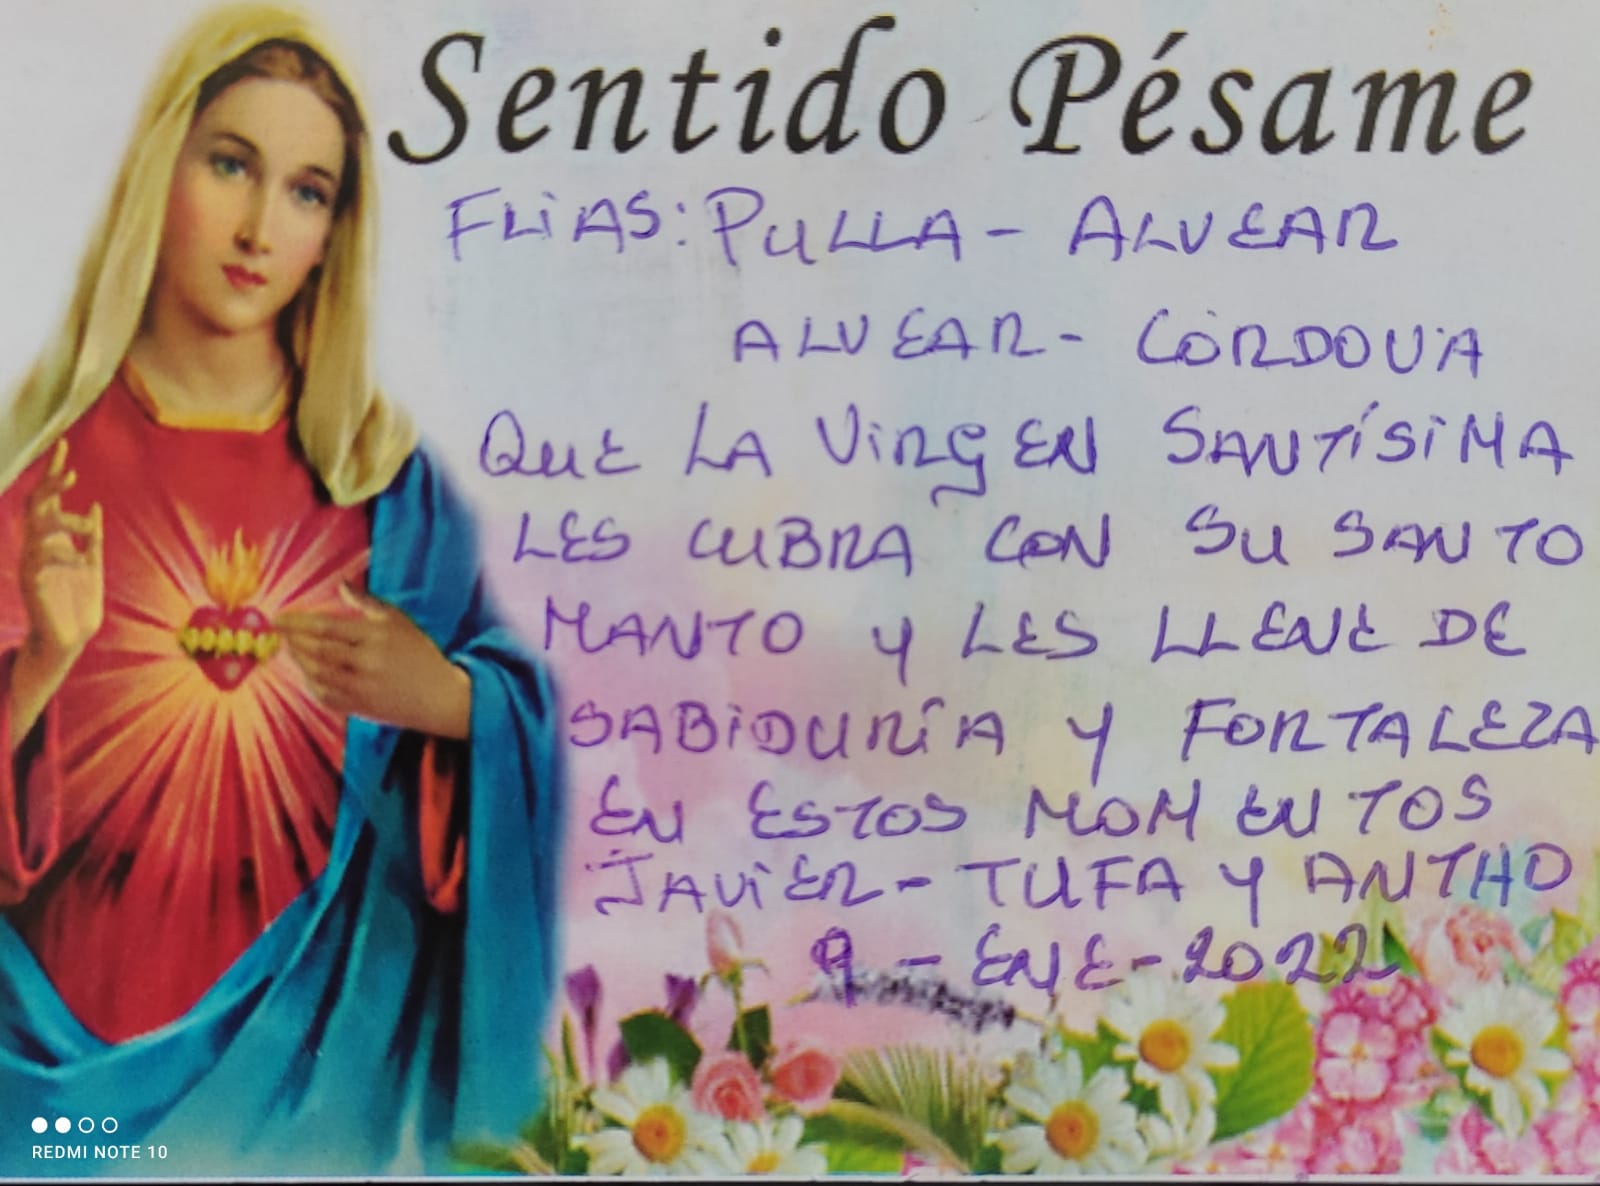 Sentido Pésame
FLIAS: PULLA - ALVEAR
ALVEAR - CÓRDOVA
QUE LA VIRGEN SANTÍSIMA
LES CUBRA CON SU SANTO
MANTO Y LES LLENE DE
SABIDURÍA Y FORTALEZA
EN ESTOS MOMENTOS
JAVIER - TUFA Y ANTHO
9 - ENE - 2022
REDMI NOTE 10